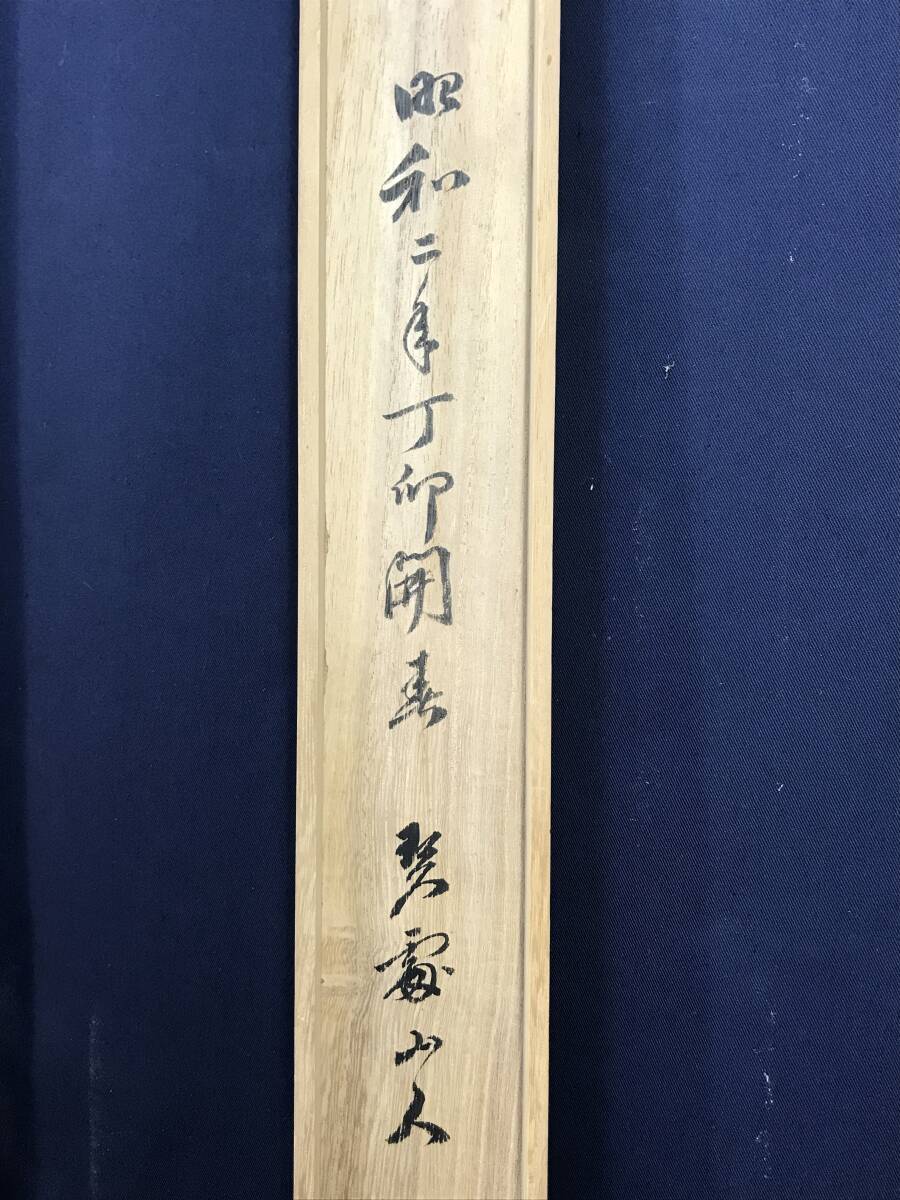 昭和二年丁卯開春 山人